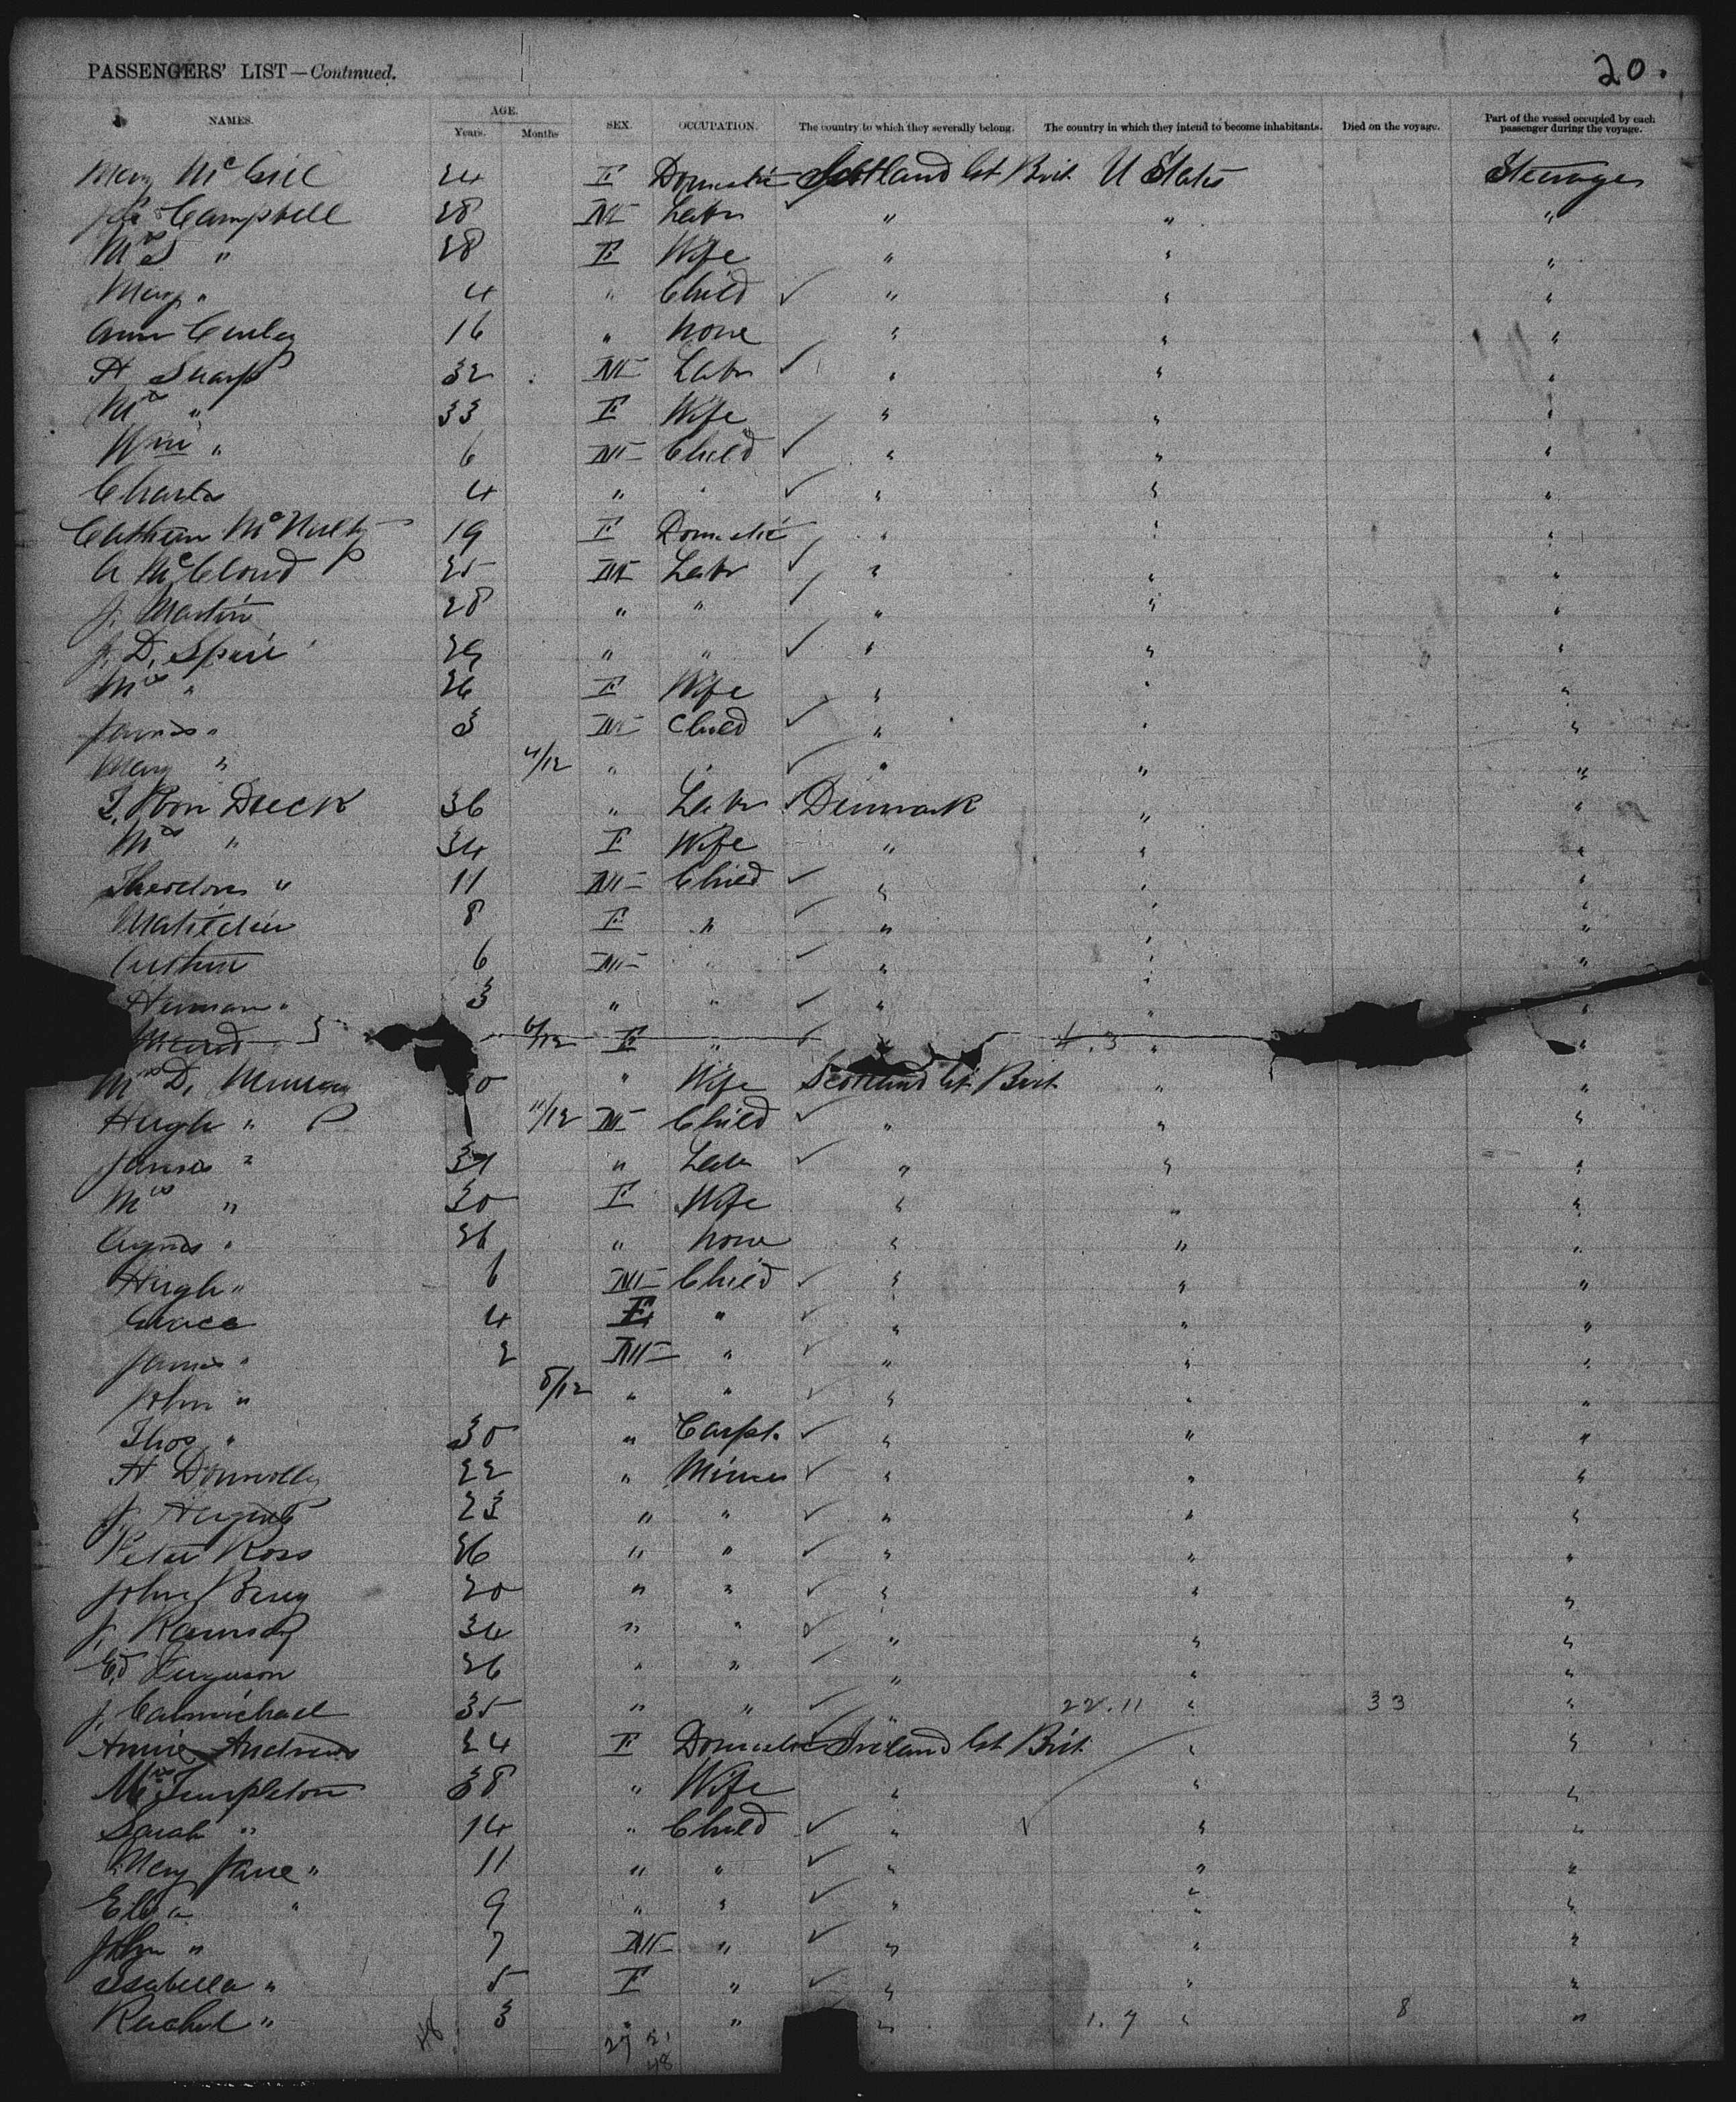 PASSENGERS' LIST—Continued. 20.
NAMES. AGE. Years. Months SEX. OCCUPATION. The country to which they severally belong. The country in which they intend to become inhabitants. Died on the voyage. Part of the vessel occupied by each passenger during the voyage.
Mary McGill 24 F Domestic Scotland Gt Brit U States Steerage
Campbell 28 M Labr " " "
Mrs " 28 F Wife " " "
Mary " 4 " Child " " "
Ann 16 " None " " "
H Sharp 32 M Labr " " "
Mrs " 33 F Wife " " "
Wm " 6 M Child " " "
Charles 4 " " " " "
McNulty 19 F Domestic " " "
A McCloud 25 M Labr " " "
J. Martin 28 " " " " "
J. D. Speir 29 " " " " "
Mrs " 26 F Wife " " "
James " 3 M Child " " "
Mary " 4/12 " " " " "
Von Dieck 36 " Labr Denmark " "
Mrs " 34 F Wife " " "
Theodore " 11 M Child " " "
8 F " " " "
Arthur 6 M " " " "
Herman " 3 " " " " "
6/12 F " 3 " "
Mrs D. " Wife Scotland Gt Brit " "
Hugh " 11/12 M Child " " "
James " " Labr " " "
Mrs " 30 F Wife " " "
Agnes " 26 " None " " "
Hugh " 6 M Child " " "
Grace 4 F " " " "
James " 2 M " " " "
John " 8/12 " " " " "
Thos " 30 " Carpt. " " "
H Donnolly 22 " Miner " " "
J. 23 " " " " "
Peter Ross 26 " " " " "
John 20 " " " " "
J. Ramsay 34 " " " " "
Ed Ferguson 26 " " " " "
J. Carmichael 35 " " " 22.11 " 33 "
Annie Andrews 24 F Domestic Ireland Gt Brit " "
Mrs Templeton 38 " Wife " " "
Sarah " 14 " Child " " "
Mary Jane " 11 " " " " "
Eliza " 9 " " " " "
John " 7 M " " " "
Isabella " 5 F " " " "
Rachel " 3 " " " 1. 7 " 8 "
48 27 21
48